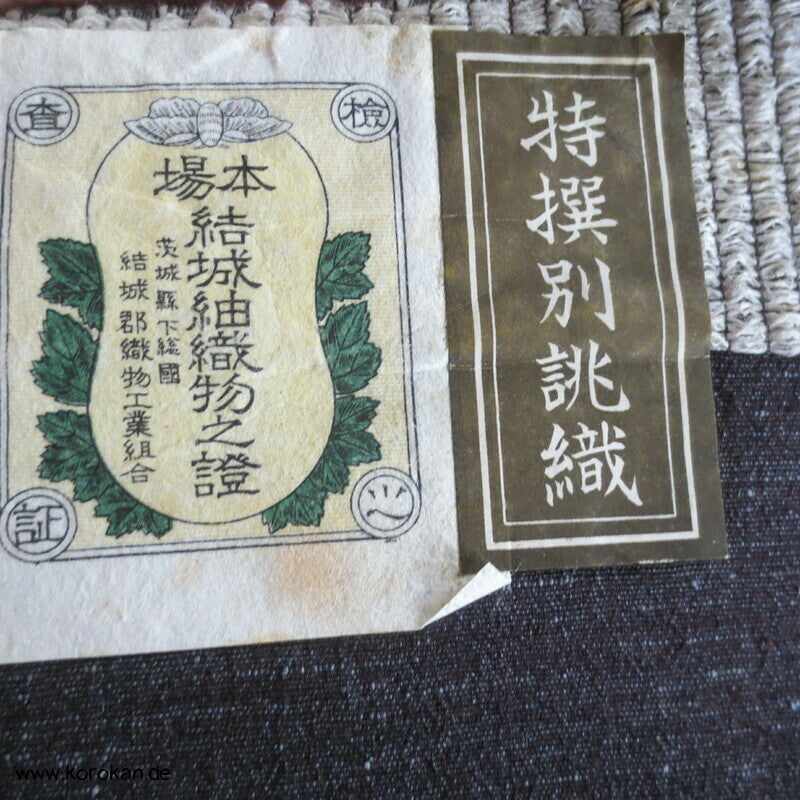 檢
査
之
証
本場
結城紬織物之證
茨城縣下総國
結城郡織物工業組合
特撰別誂織
www.korokan.de